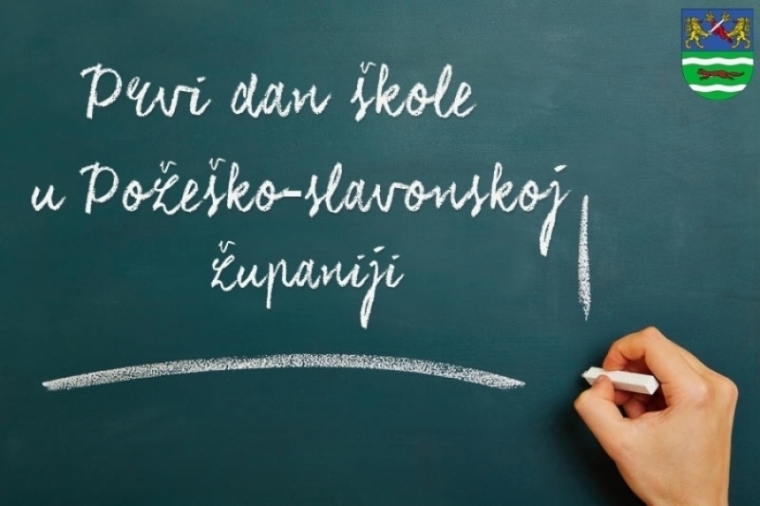 Prvi dan škole
u Požeško-slavonskoj
županiji